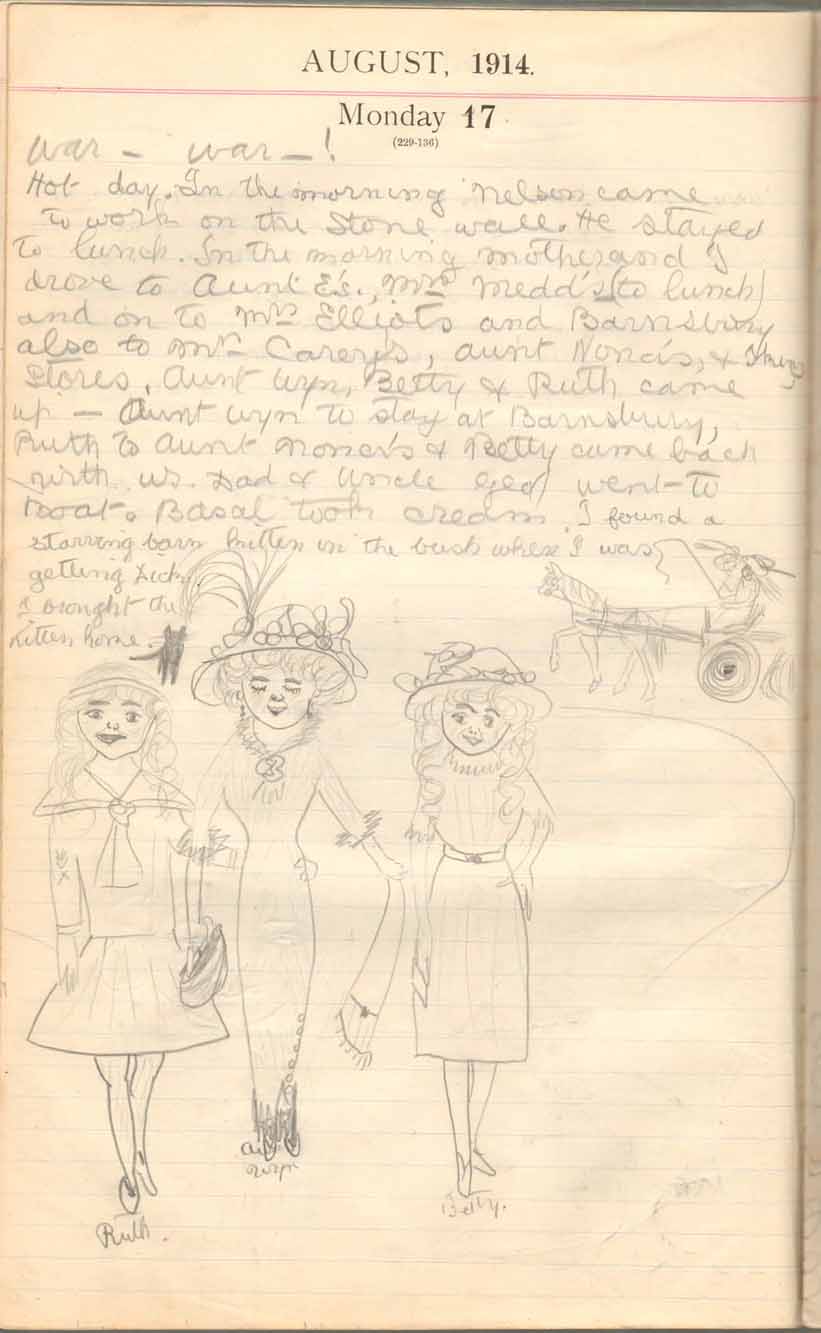 AUGUST, 1914.
Monday 17
(229-136)
war – war – !
Hot day. In the morning Nelson came
to work on the stone wall. He stayed
to lunch. In the morning mother and I
drove to Aunt E's., Mrs Medd's (to lunch)
and on to Mrs Elliots and Barnsbury
also to Mr Careys, aunt Nona's, &
Stores. Aunt Wyn, Betty & Ruth came
up – Aunt Wyn to stay at Barnsbury,
Ruth to Aunt Nona's & Betty came back
with us. Dad & Uncle Geo went to
Boat. Basal took cream. I found a
starving barn kitten in the bush when I was
getting Dick.
I brought the
kitten home.
Aunt
Wyn
Betty.
Ruth.